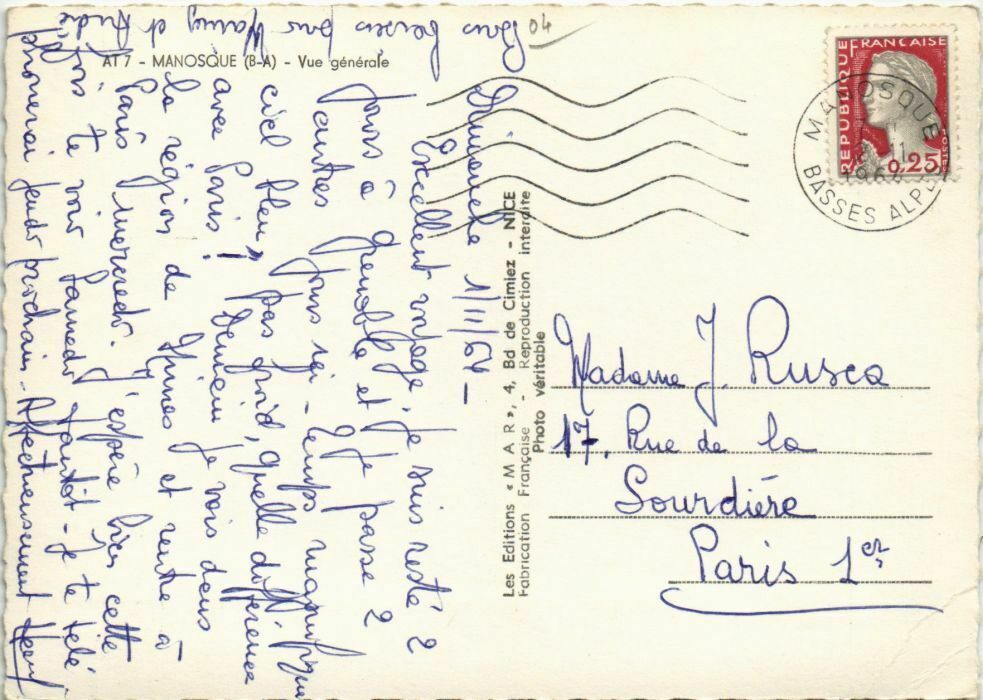 04
AT 7 - MANOSQUE (B-A) - Vue générale
REPUBLIQUE FRANCAISE
POSTES
0,25
MANOSQUE
11
BASSES ALPES
Dimanche 1/11/64 -
Excellent voyage, je suis resté 2
jours à Grenoble et je passe 2
autres jours ici - Temps magnifique
ciel bleu, pas froid, quelle différence
avec Paris ! Demain je vais dans
la région de Nîmes et rentre à
Paris mercredi. J'espère bien cette
fois te voir samedi - Je te télé
phonerai jeudi prochain - Affectueusement
Bons baisers pour et André
Les Editions « M A R », 4, Bd de Cimiez - NICE
Fabrication Française - Reproduction interdite
Photo véritable
Madame J. Rusca
17, Rue de la
Sourdière
Paris 1er